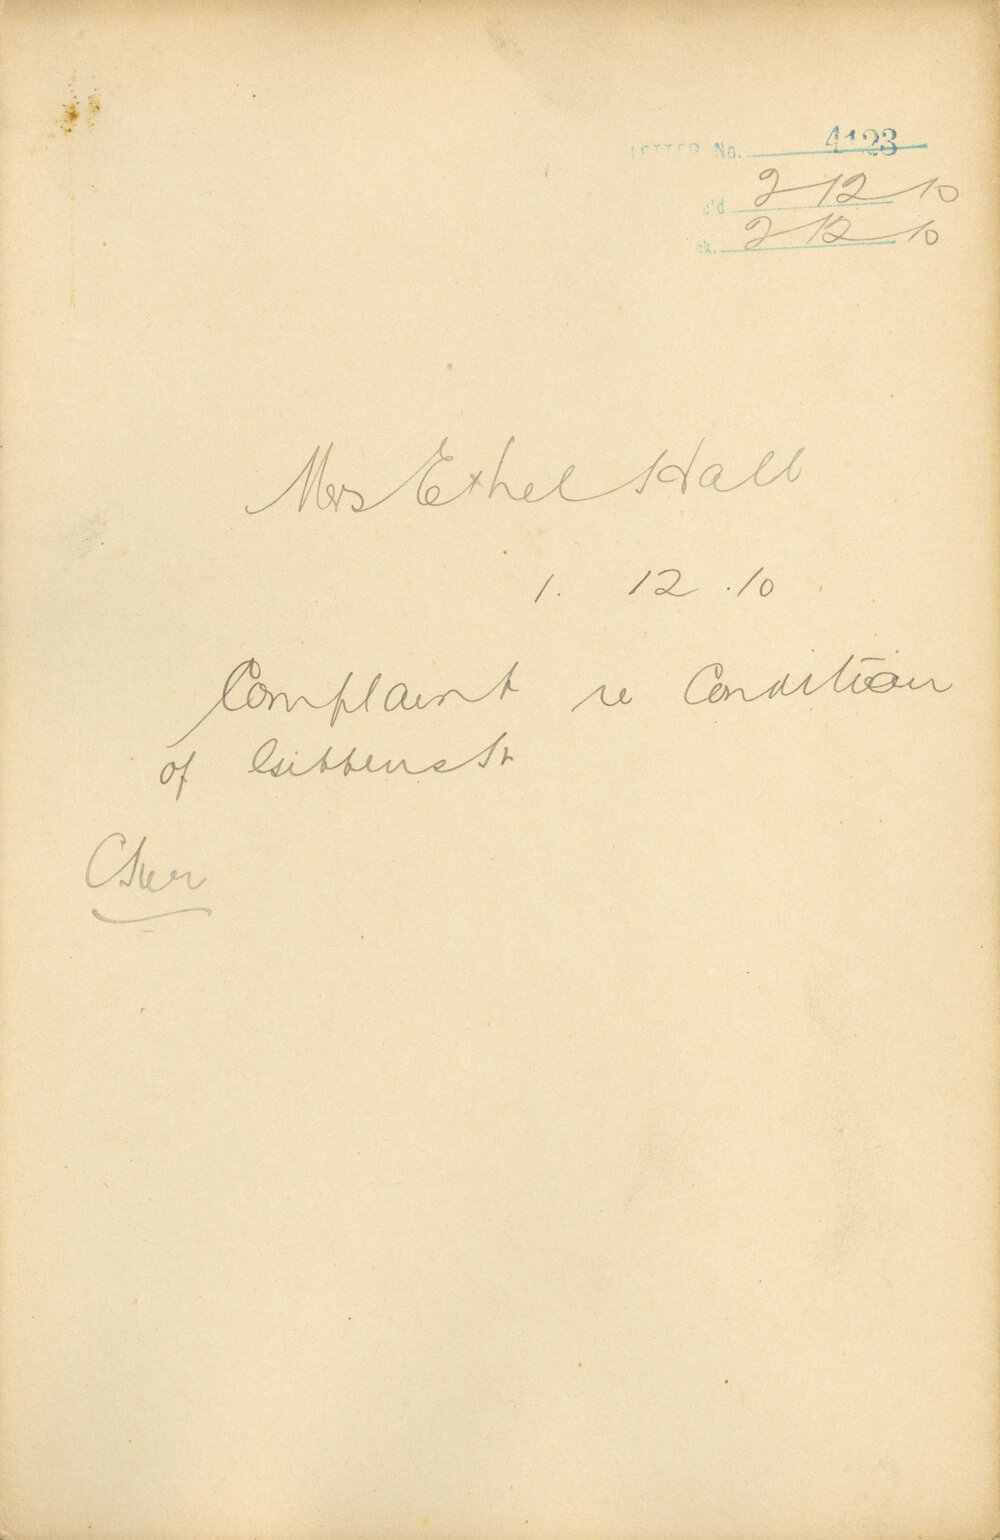 LETTER No. 4123
c'd 2 12 10
ck. 2 12 10
Mrs Ethel Hall
1. 12 . 10
Complaint re Condition
of Gibbens St